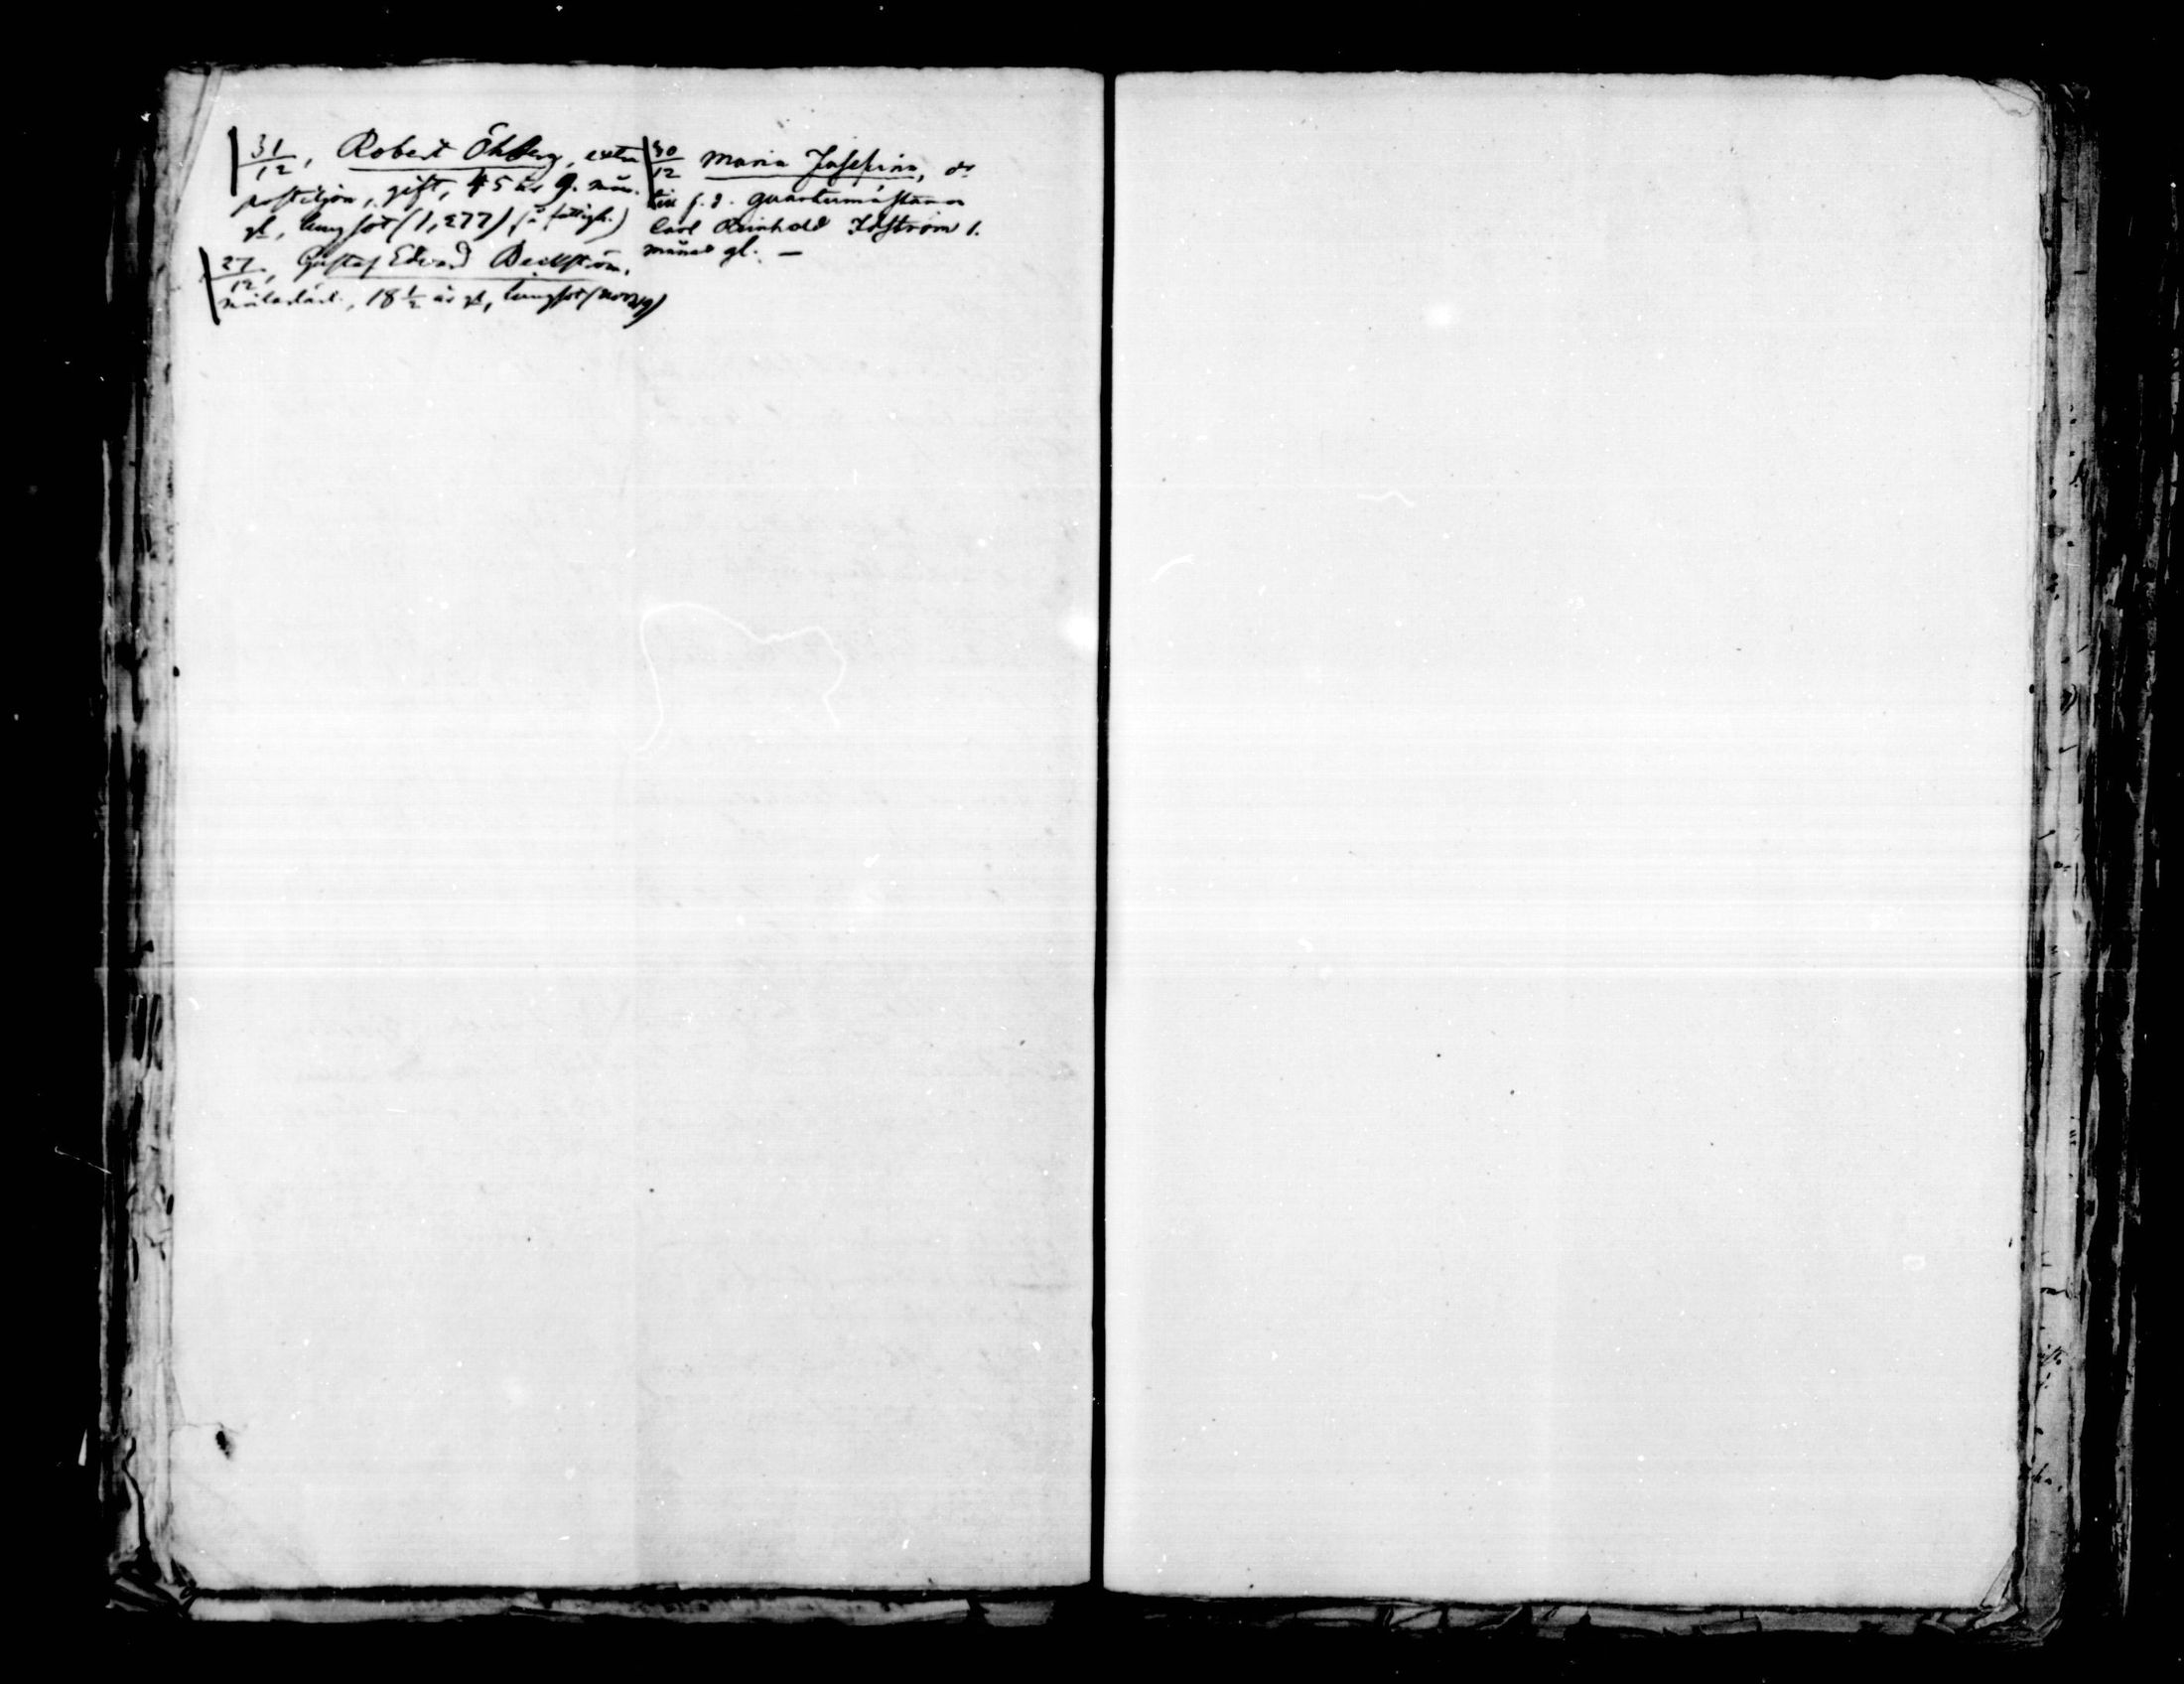 31/12, Robert Öhberg, extra
postiljon, gift, 45 år 9. mån.
gl, lungsot (1,277) (å fattigh.)
27/12, Gustaf Edvard Beckström,
målarlärl., 18 ½ år gl, lungsot
30/12 Maria Josefina, dr
till f.d. quartermästaren
Carl Reinhold Idström 1.
månad gl. —